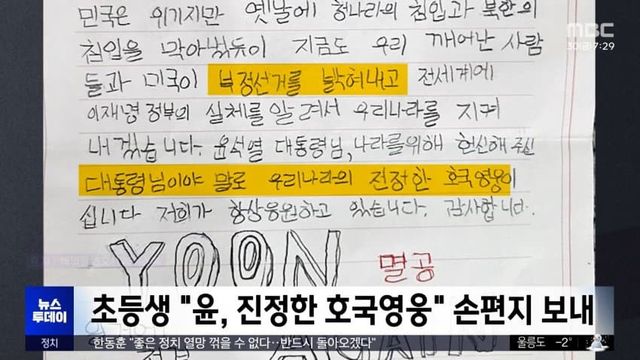 민국은 위기지만 옛날에 청나라의 침입과 북한의
MBC
30금 7:29
침입을 막아냈듯이 지금도 우리 깨어난 사람
들과 미국이 부정선거를 밝혀내고 전세계에
이재명 정부의 실체를 알려서 우리나라를 지켜
내겠습니다. 윤석열 대통령님, 나라를 위해 헌신해 주신
대통령님이야 말로 우리나라의 진정한 호국영웅이
십니다 저희가 항상 응원하고 있습니다. 감사합니다.
YOON
멸공
뉴스
투데이
초등생 "윤, 진정한 호국영웅" 손편지 보내
정치
한동훈 "좋은 정치 열망 꺾을 수 없다‥반드시 돌아오겠다"
울릉도 -2°
AGAIN